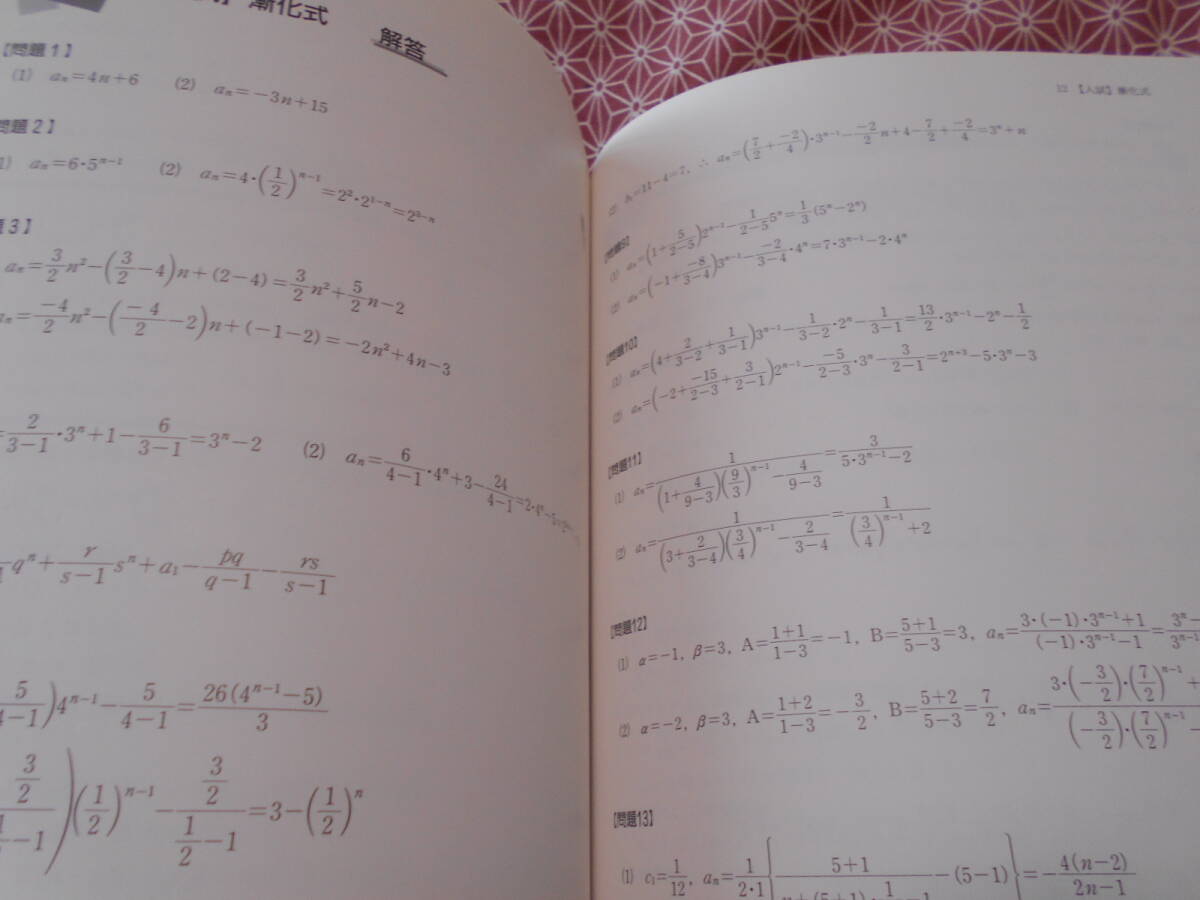 漸化式 解答
【問題1】
(1) aₙ=4n+6 (2) aₙ=−3n+15
問題2】
aₙ=6・5ⁿ⁻¹ (2) aₙ=4・(1/2)ⁿ⁻¹=2²・2¹⁻ⁿ=2³⁻ⁿ
題3】
aₙ=3/2 n²−(3/2−4)n+(2−4)=3/2 n²+5/2 n−2
aₙ=−4/2 n²−(−4/2−2)n+(−1−2)=−2n²+4n−3
=2/(3−1)・3ⁿ+1−6/(3−1)=3ⁿ−2 (2) aₙ=6/(4−1)・4ⁿ+3−24/(4−1)=2・4ⁿ−5
qⁿ+r/(s−1) sⁿ+a₁−pq/(q−1)−rs/(s−1)
5/(4−1))4ⁿ⁻¹−5/(4−1)=26(4ⁿ⁻¹−5)/3
(3/2)/(1/2−1))(1/2)ⁿ⁻¹−(3/2)/(1/2−1)=3−(1/2)ⁿ
12 【入試】漸化式
(2) b₁=11−4=7, ∴ aₙ=(7/2+−2/4)・3ⁿ⁻¹−−2/2 n+4−7/2+−2/4=3ⁿ+n
【問題9】
(1) aₙ=(1+5/(2−5))2ⁿ⁻¹−1/(2−5) 5ⁿ=1/3(5ⁿ−2ⁿ)
(2) aₙ=(−1+−8/(3−4))3ⁿ⁻¹−−2/(3−4)・4ⁿ=7・3ⁿ⁻¹−2・4ⁿ
【問題10】
(1) aₙ=(4+2/(3−2)+1/(3−1))3ⁿ⁻¹−1/(3−2)・2ⁿ−1/(3−1)=13/2・3ⁿ⁻¹−2ⁿ−1/2
(2) aₙ=(−2+−15/(2−3)+3/(2−1))2ⁿ⁻¹−−5/(2−3)・3ⁿ−3/(2−1)=2ⁿ⁺³−5・3ⁿ−3
【問題11】
(1) aₙ=1/((1+4/(9−3))(9/3)ⁿ⁻¹−4/(9−3))=3/(5・3ⁿ⁻¹−2)
(2) aₙ=1/((3+2/(3−4))(3/4)ⁿ⁻¹−2/(3−4))=1/((3/4)ⁿ⁻¹+2)
【問題12】
(1) α=−1, β=3, A=(1+1)/(1−3)=−1, B=(5+1)/(5−3)=3, aₙ=(3・(−1)・3ⁿ⁻¹+1)/((−1)・3ⁿ⁻¹−1)=3ⁿ−/3ⁿ⁻¹
(2) α=−2, β=3, A=(1+2)/(1−3)=−3/2, B=(5+2)/(5−3)=7/2, aₙ=(3・(−3/2)・(7/2)ⁿ⁻¹+/((−3/2)・(7/2)ⁿ⁻¹−
【問題13】
(1) c₁=1/12, aₙ=1/(2・1){(5+1)/(n+(5+1)・1/ −1)−(5−1)}=−4(n−2)/(2n−1)